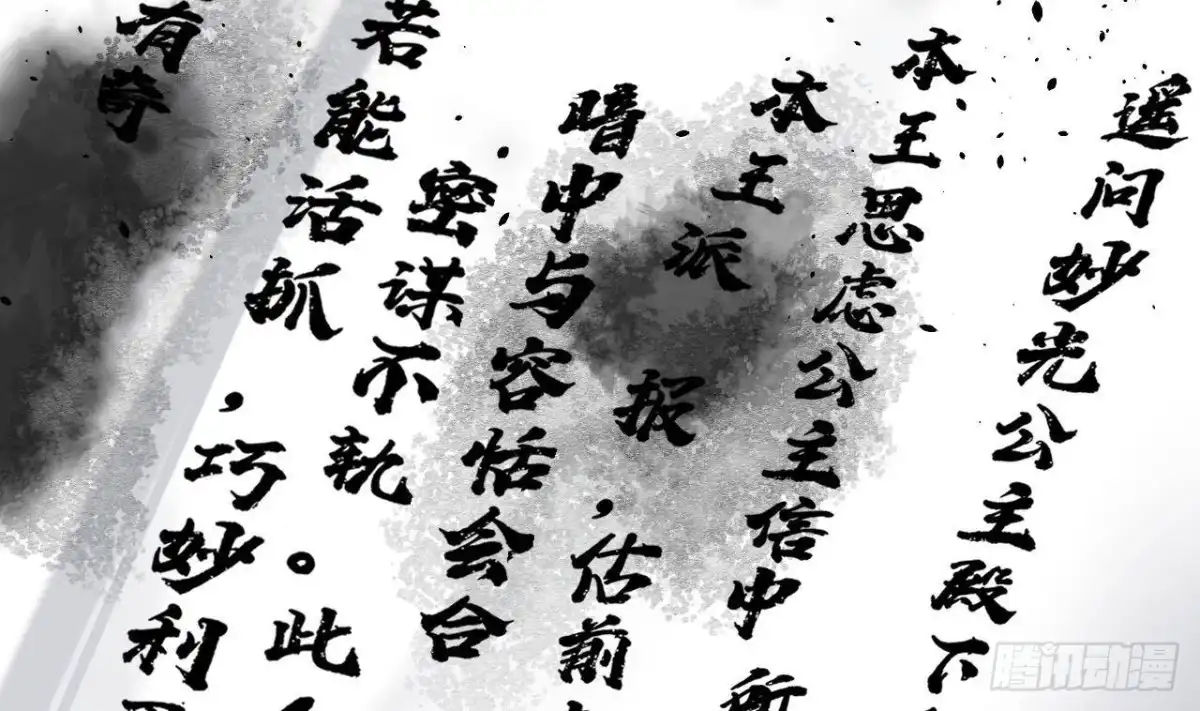 遥问妙光公主殿下
本王思虑公主信中
本王派报，估前
暗中与容恬会合
密谋不轨。此
若能活抓，巧妙利
有奇
腾讯动漫